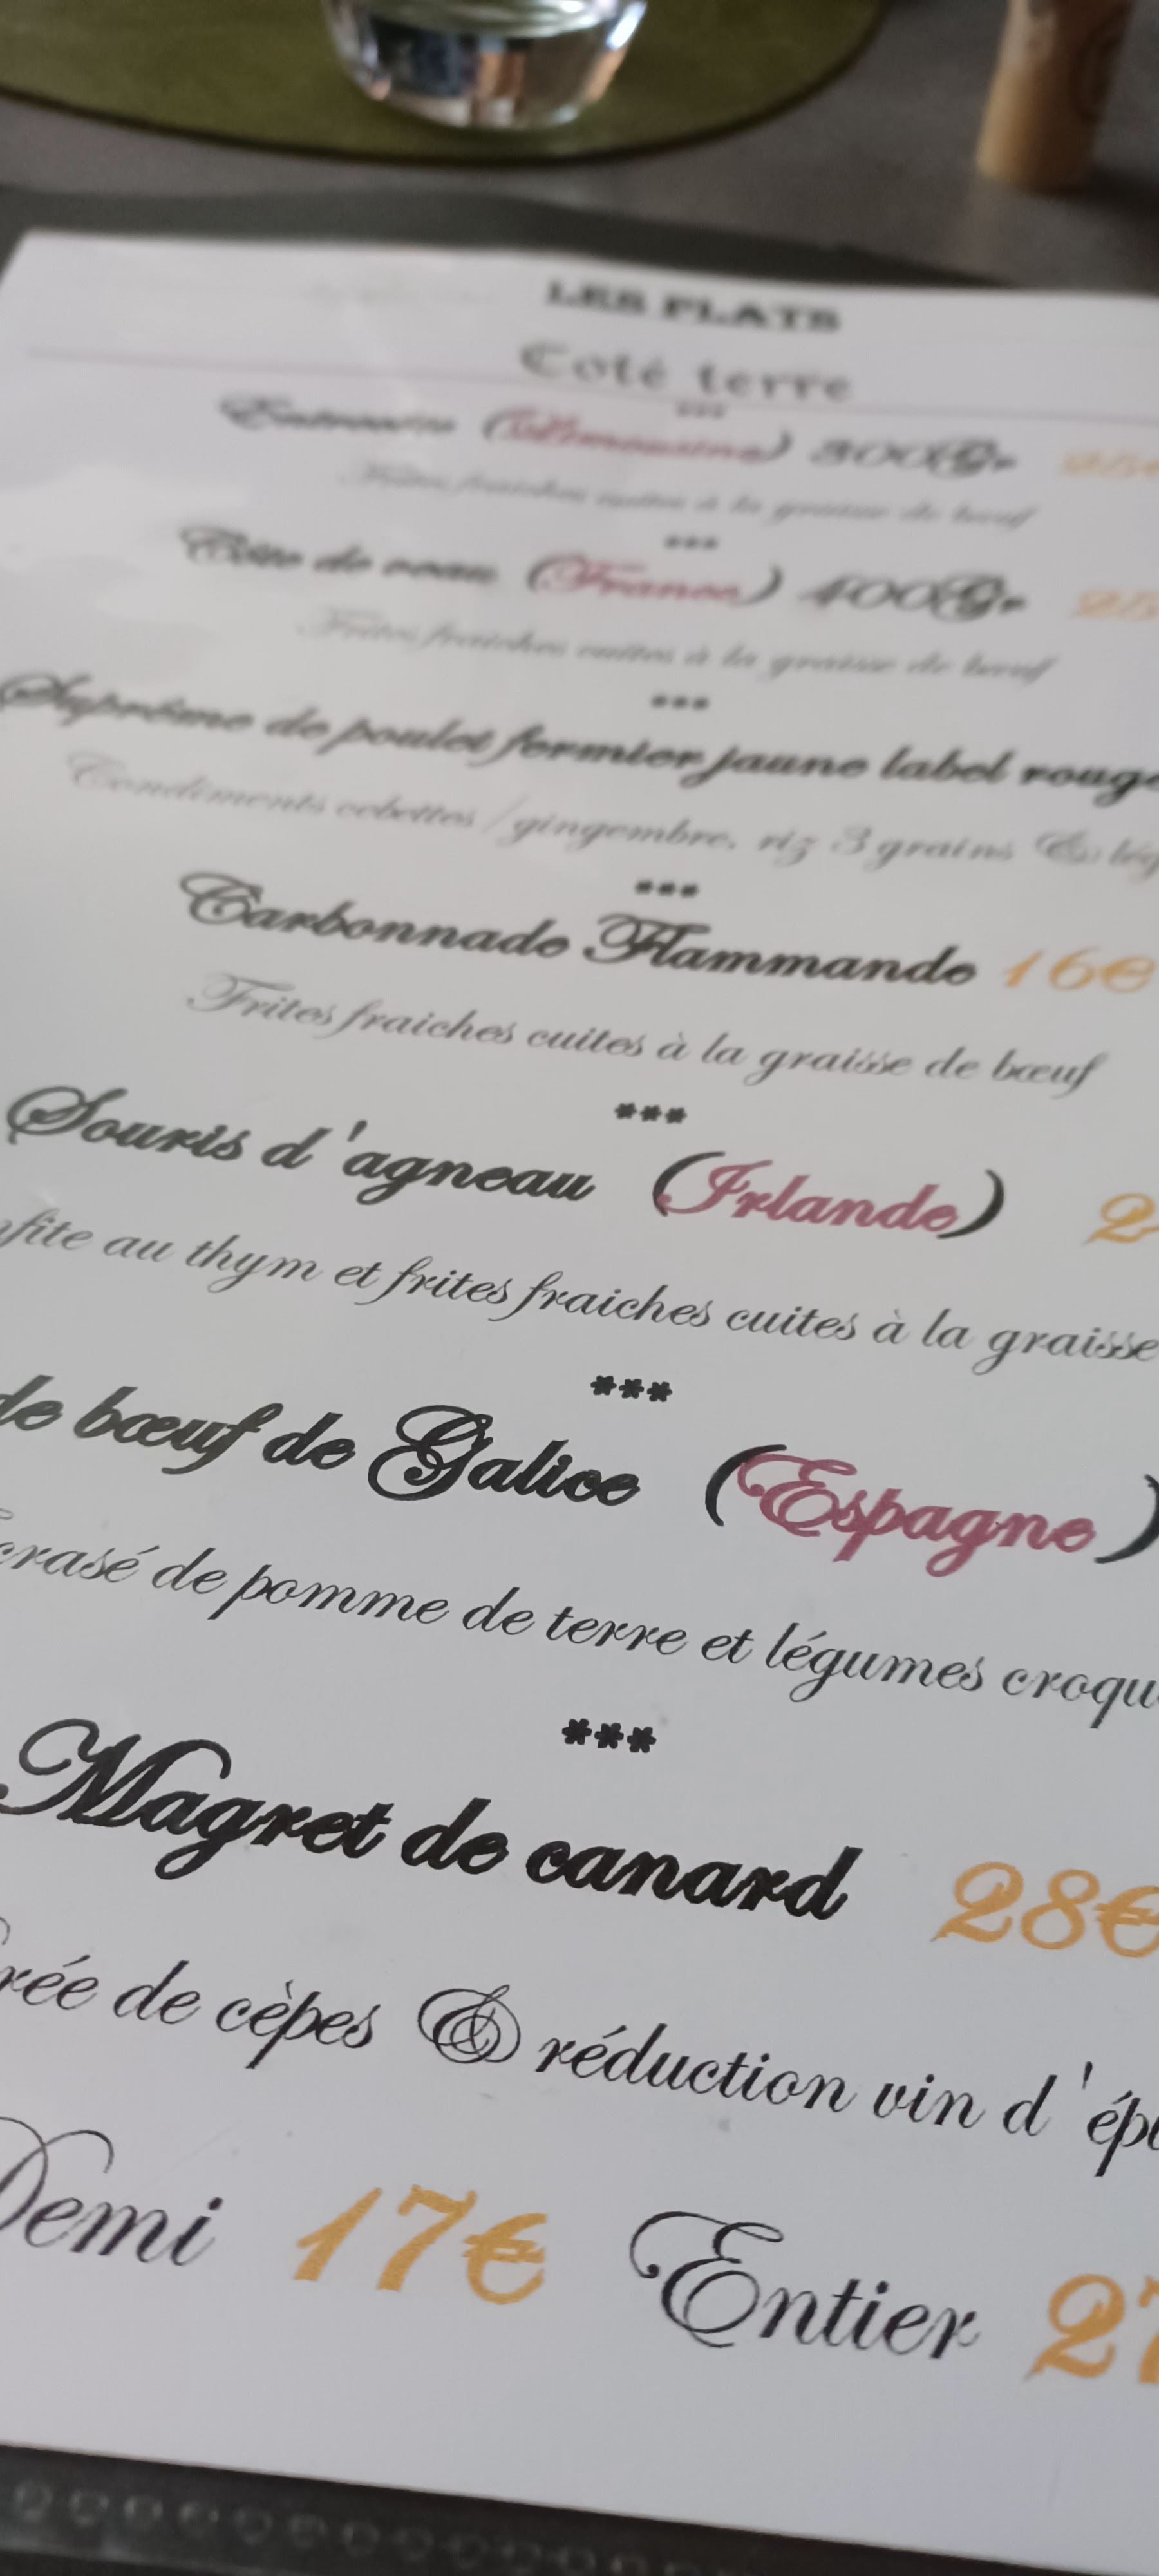 LES PLATS
Coté terre
***
Entrecôte (Limousine) 300Gr
Frites fraiches cuites à la graisse de bœuf
***
Côte de veau (France) 400Gr
Frites fraiches cuites à la graisse de bœuf
***
Suprême de poulet fermier jaune label rouge
Condiments cebettes / gingembre, riz 3 grains &
***
Carbonnade Flammande 16€
Frites fraiches cuites à la graisse de bœuf
***
Souris d'agneau (Irlande)
au thym et frites fraiches cuites à la graisse
***
de bœuf de Galice (Espagne)
crasé de pomme de terre et légumes croqu
***
Magret de canard 28€
rée de cèpes & réduction vin d'
Demi 17€ Entier 27